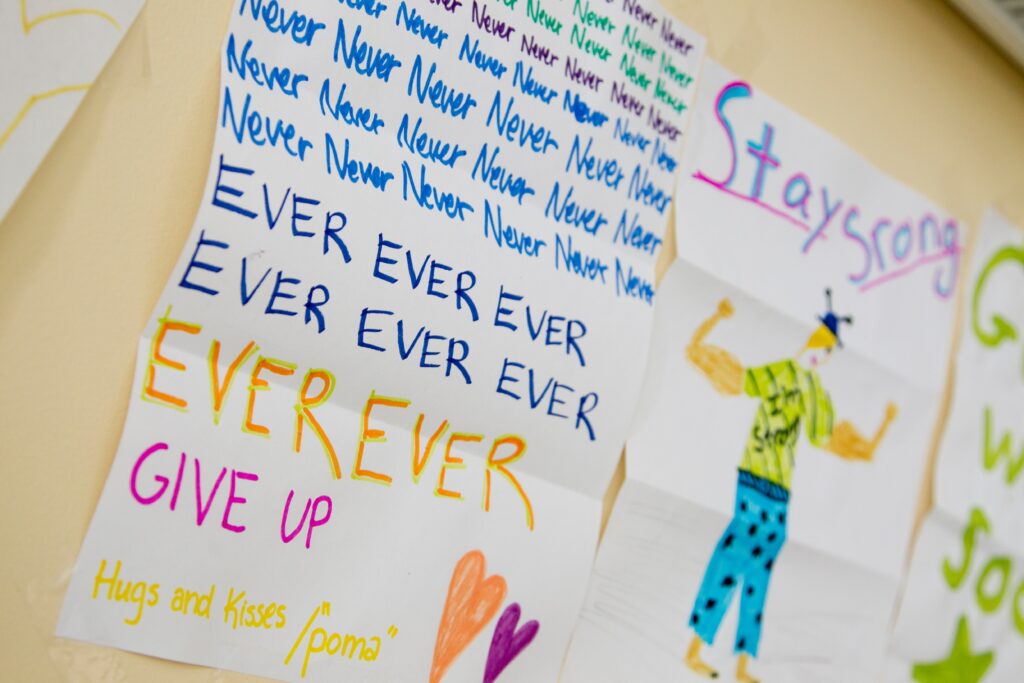 Never Never
Never Never Never
Never Never Never Never
Never Never Never Never Never
Never Never Never Never Never Never
Never Never Never Never Never Never
Never Never Never Never Never Never
Never Never Never Never Never Never
EVER EVER EVER
EVER EVER EVER
EVER EVER
GIVE UP
Hugs and Kisses /"poma"
Stay srong
I'm
strong
G
W
Soo